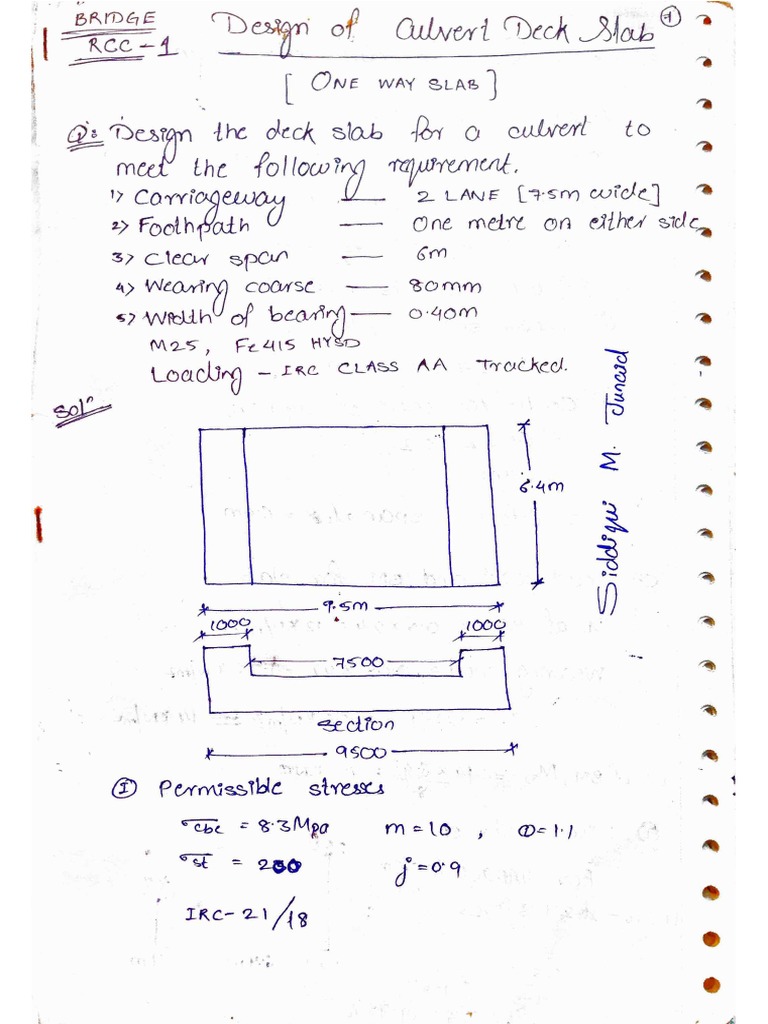 BRIDGE
RCC-1
Design of Culvert Deck Slab
1
[ONE WAY SLAB]
Q: Design the deck slab for a culvert to
meet the following requirement.
1) Carriageway — 2 LANE [7.5m wide]
2) Foothpath — One metre on either side
3) Clear span — 6m
4) Wearing coarse — 80mm
5) Width of bearing — 0.40m
M25, Fe415 HYSD
Loading - IRC CLASS AA Tracked.
Solⁿ
Siddiqui M. Junaid
6.4m
9.5m
1000 1000
7500
Section
9500
I Permissible stresses
σcbc = 8.3Mpa m=10 , Q=1.1
σst = 200 j=0.9
IRC-21/18